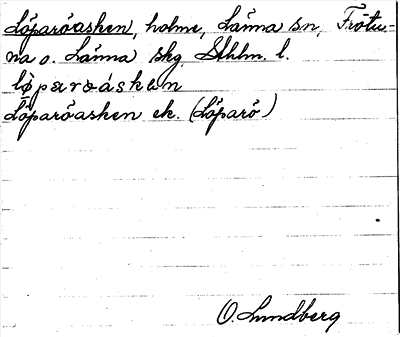 Löparöasken, holme, Länna sn, Frötu-
na o. Länna skg Sthlm. l.
lò̤paroáskən
Löparöasken ek. (Löparö)
O. Lundberg